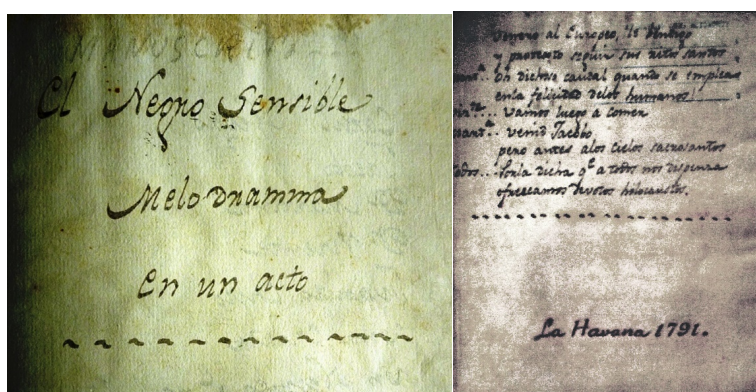 MANUSCRIT
El Negro Sensible
Melodramma
En un acto
Venero al Europeo, le
y protesto seguir sus ritos santos
Oh dichoso caudal quando se emplea
en la felicidad de los humanos!
Vamos luego a comer
venid Jacobo
pero antes a los cielos sacrosantos
Por la dicha q.e a todos nos dispensa
ofrezcamos devotos holocaustos.
La Havana 1791.